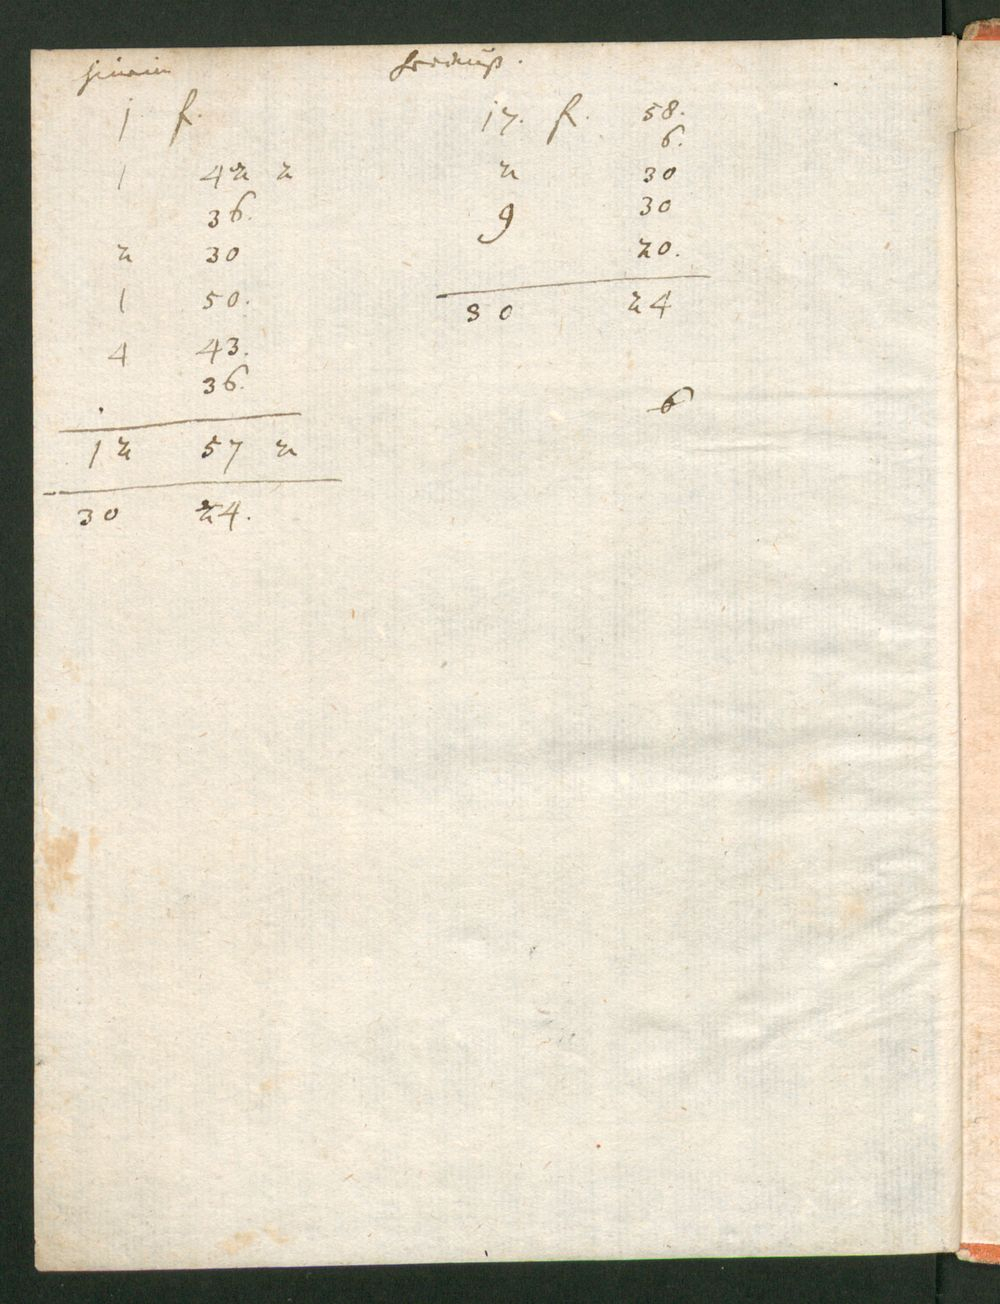 hinein
1 f.
1 42 2
36.
2 30
1 50.
4 43.
36.
12 57 2
30 24.
herauß.
17. f. 58.
6.
2 30
9 30
20.
30 24
6